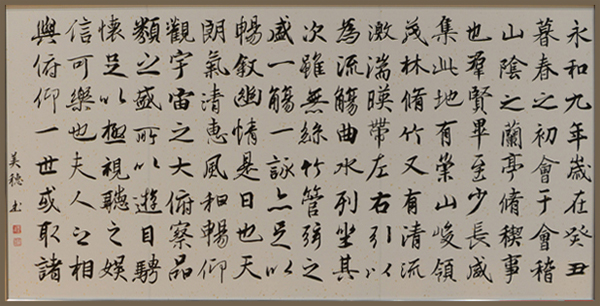 永和九年歲在癸丑
暮春之初會于會稽
山陰之蘭亭脩禊事
也羣賢畢至少長咸
集此地有崇山峻領
茂林脩竹又有清流
激湍暎帶左右引以
為流觴曲水列坐其
次雖無絲竹管弦之
盛一觴一詠亦足以
暢叙幽情是日也天
朗氣清惠風和暢仰
觀宇宙之大俯察品
類之盛所以遊目騁
懷足以極視聽之娛
信可樂也夫人之相
與俯仰一世或取諸
美穂